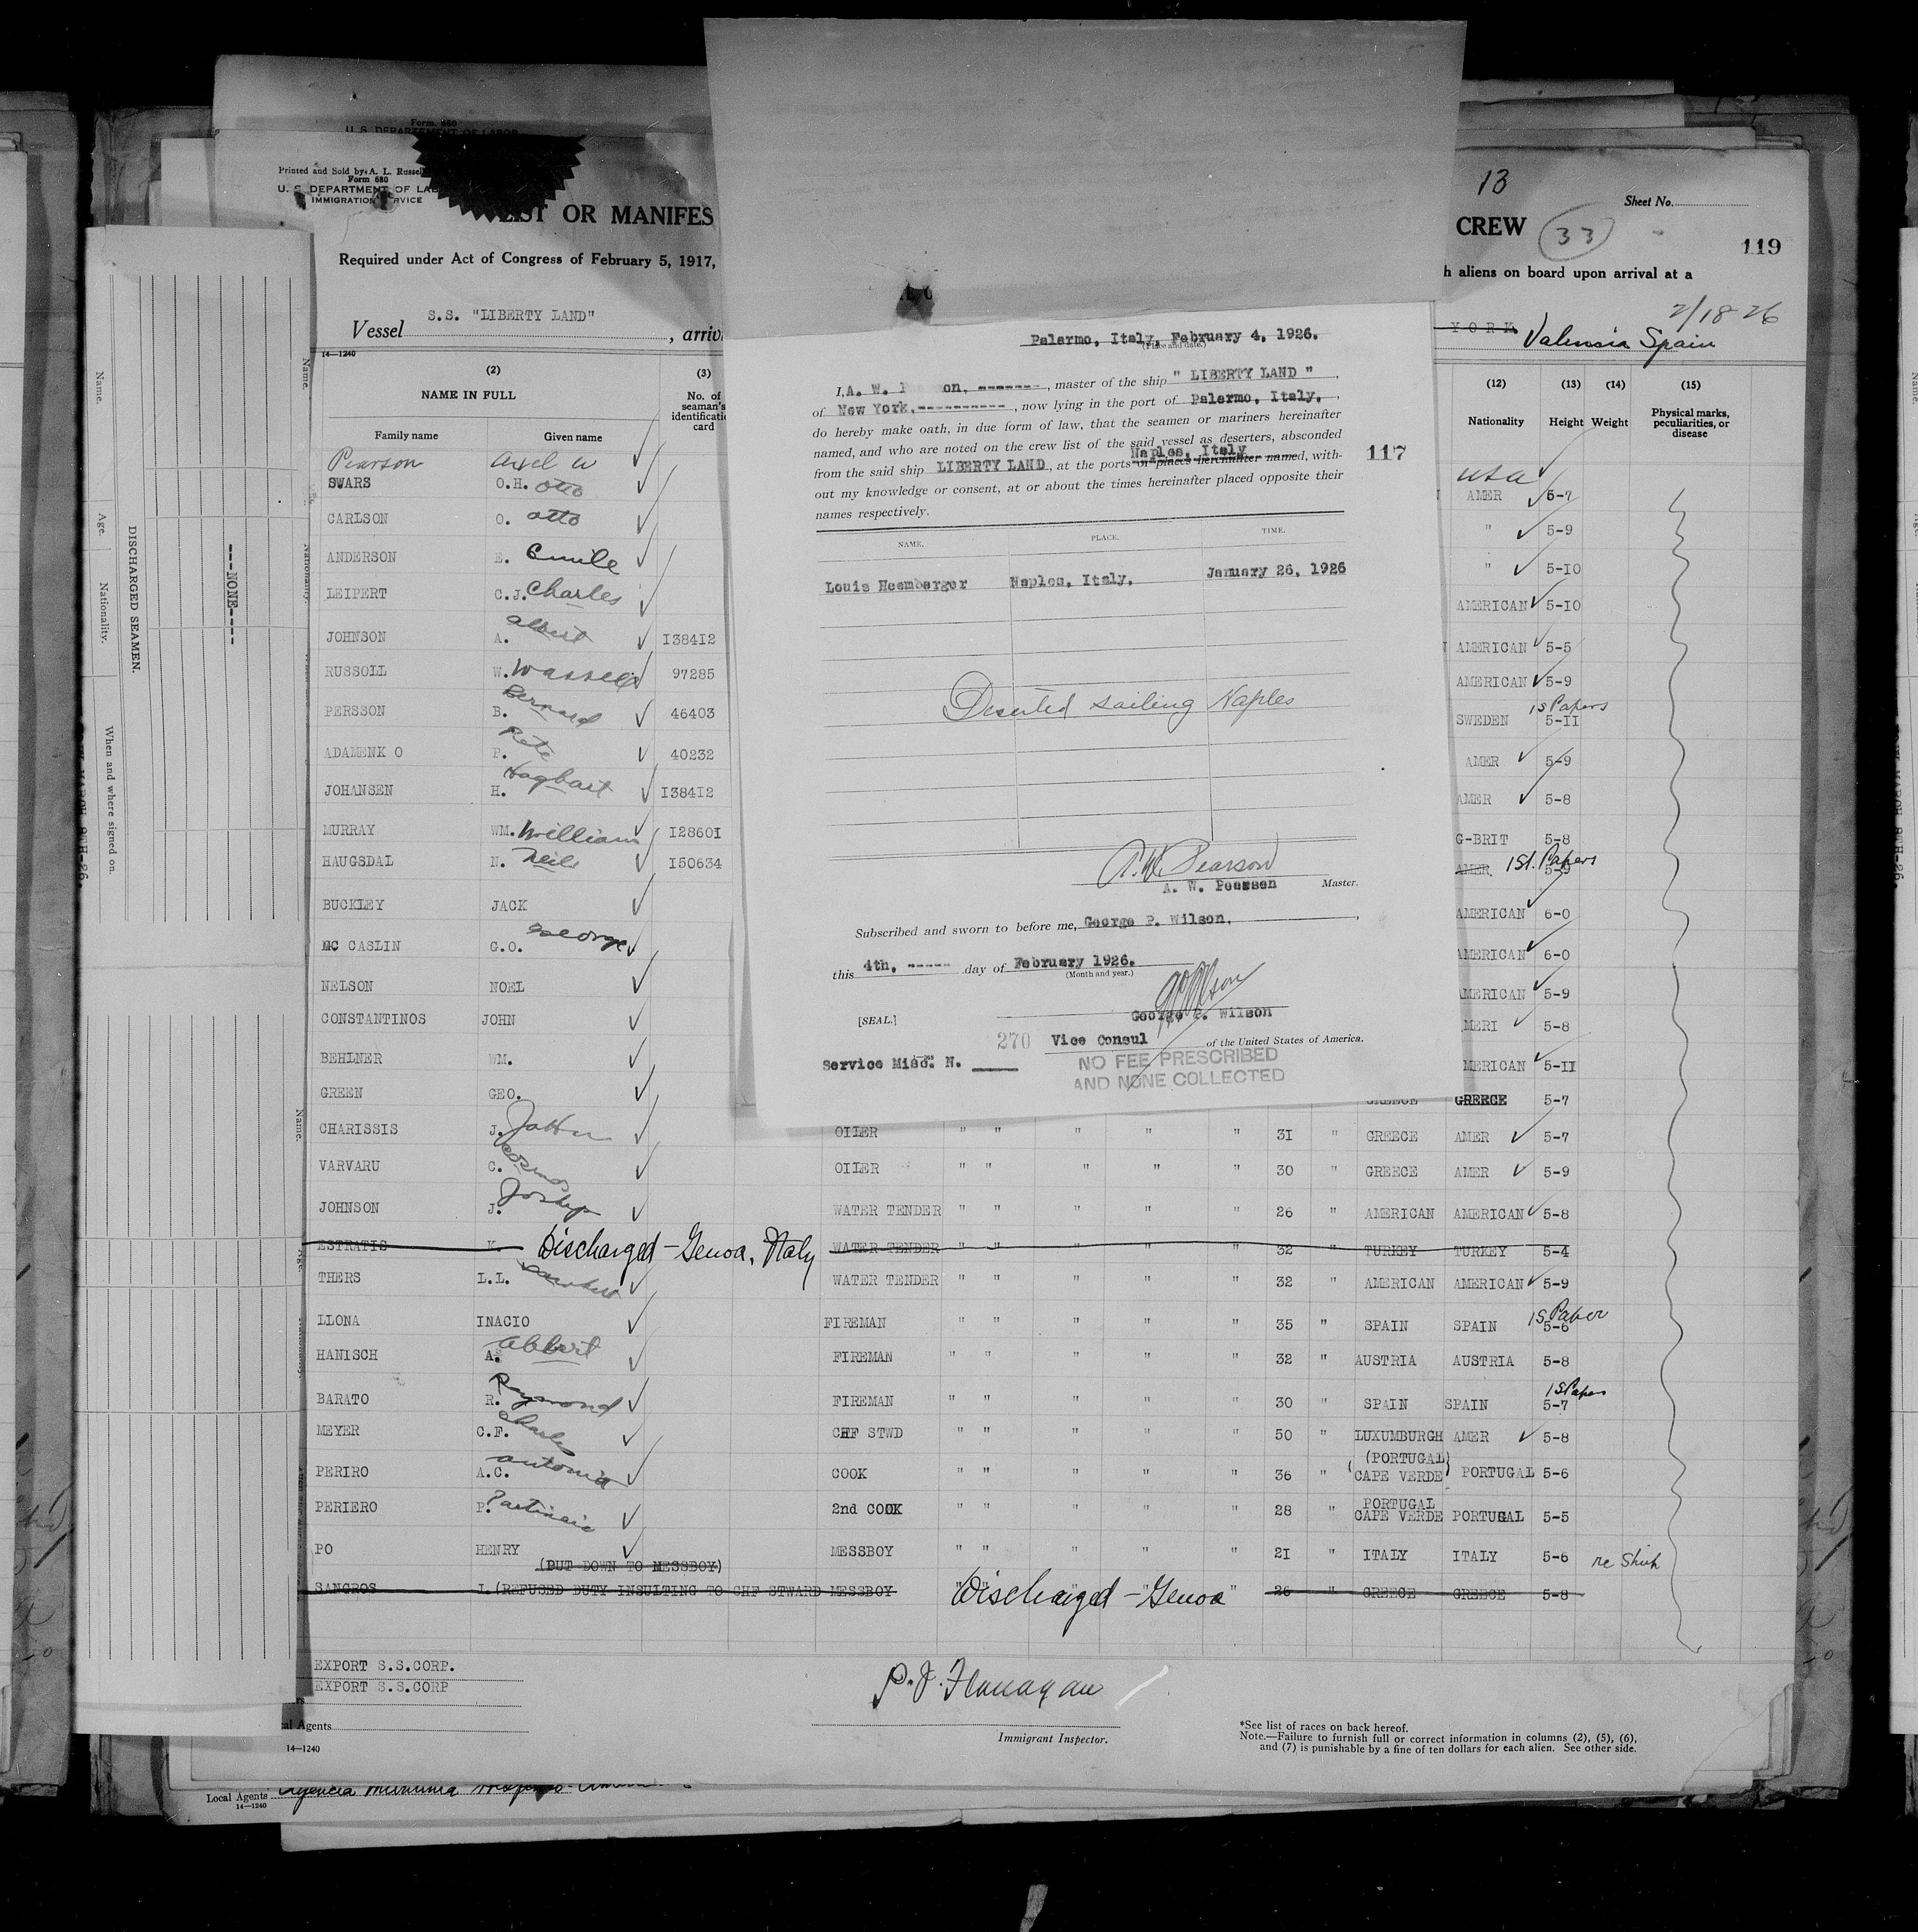 Form 680
Printed and Sold by A. L. Russell
Form 680
U. S. DEPARTMENT OF LAB
IMMIGRATION SERVICE
LIST OR MANIFES
Required under Act of Congress of February 5, 1917,
Vessel S.S. "LIBERTY LAND" , arriv
14—1240
13
Sheet No.
CREW
33
119
h aliens on board upon arrival at a
2/18 26
YORK Valensia Spain
Palermo, Italy, February 4, 1926.
(Place and date.)
I, A. W. on, -------, master of the ship " LIBERTY LAND " ,
of New York,----------, now lying in the port of Palermo, Italy, ,
do hereby make oath, in due form of law, that the seamen or mariners hereinafter
named, and who are noted on the crew list of the said vessel as deserters, absconded
Naples, Italy
from the said ship LIBERTY LAND, at the ports or places hereinafter named, with-
out my knowledge or consent, at or about the times hereinafter placed opposite their
names respectively.
117
NAME. PLACE. TIME.
Louis Hesmberger Naples, Italy. January 26, 1926
Deserted sailing Naples
A. W. Pearson
A. W. Pearson Master.
Subscribed and sworn to before me, George P. Wilson,
this 4th, ----- day of February 1926.
(Month and year.)
George P. Wilson
[SEAL.]
270 Vice Consul of the United States of America.
Service Misc. N.
NO FEE PRESCRIBED
AND NONE COLLECTED
(2) (3)
NAME IN FULL No. of seaman's identification card
Family name Given name
(12) (13) (14) (15)
Nationality Height Weight Physical marks, peculiarities, or disease
Pearson Axel W USA
SWARS O.H. Otto AMER 5-7
CARLSON O. Otto " 5-9
ANDERSON E. Emile " 5-10
LEIPERT C.J. Charles AMERICAN 5-10
JOHNSON A. Albert 138412 AMERICAN 5-5
RUSSOLL W. Wassell 97285 AMERICAN 5-9
PERSSON B. Bernard 46403 SWEDEN 1s Papers 5-11
ADAMENK O P. Pete 40232 AMER 5-9
JOHANSEN H. Hagbart 138412 AMER 5-8
MURRAY WM. William 128601 G-BRIT 5-8
HAUGSDAL N. Neils 150634 AMER 1st. Papers 5-9
BUCKLEY JACK AMERICAN 6-0
MC CASLIN G.O. George AMERICAN 6-0
NELSON NOEL AMERICAN 5-9
CONSTANTINOS JOHN MERI 5-8
BEHLNER WM. MERICAN 5-11
GREEN GEO. GREECE GREECE 5-7
CHARISSIS J. OILER " " " " " 31 " GREECE AMER 5-7
VARVARU C. Cosmos OILER " " " " " 30 " GREECE AMER 5-9
JOHNSON J. WATER TENDER " " " " " 26 " AMERICAN AMERICAN 5-8
ESTRATIS K. Discharged - Genoa, Italy WATER TENDER " " " " " 32 " TURKEY TURKEY 5-4
THERS L.L. WATER TENDER " " " " " 32 " AMERICAN AMERICAN 5-9
LLONA INACIO FIREMAN " " " " " 35 " SPAIN SPAIN 1s Paper 5-6
HANISCH A. Albert FIREMAN " " " " " 32 " AUSTRIA AUSTRIA 5-8
BARATO R. Raymond FIREMAN " " " " " 30 " SPAIN SPAIN 1s Papers 5-7
MEYER C.F. Charles CHF STWD " " " " " 50 " LUXUMBURGH AMER 5-8
PERIRO A.C. Antonia COOK " " " " " 36 " (PORTUGAL) CAPE VERDE PORTUGAL 5-6
PERIERO P. 2nd COOK " " " " " 28 " PORTUGAL CAPE VERDE PORTUGAL 5-5
PO HENRY MESSBOY " " " " " 21 " ITALY ITALY 5-6
(PUT DOWN TO MESSBOY)
SANGROS I. (REFUSED DUTY INSULTING TO CHF STWARD MESSBOY Discharged - Genoa " 26 " GREECE GREECE 5-8
EXPORT S.S.CORP.
EXPORT S.S.CORP
al Agents
14—1240
P. J. Flanagan
Immigrant Inspector.
*See list of races on back hereof.
Note.—Failure to furnish full or correct information in columns (2), (5), (6),
and (7) is punishable by a fine of ten dollars for each alien. See other side.
Local Agents
14—1240
Name.
Age.
Nationality.
When and where signed on.
DISCHARGED SEAMEN.
---NONE----
Name.
Nationality.
Name.